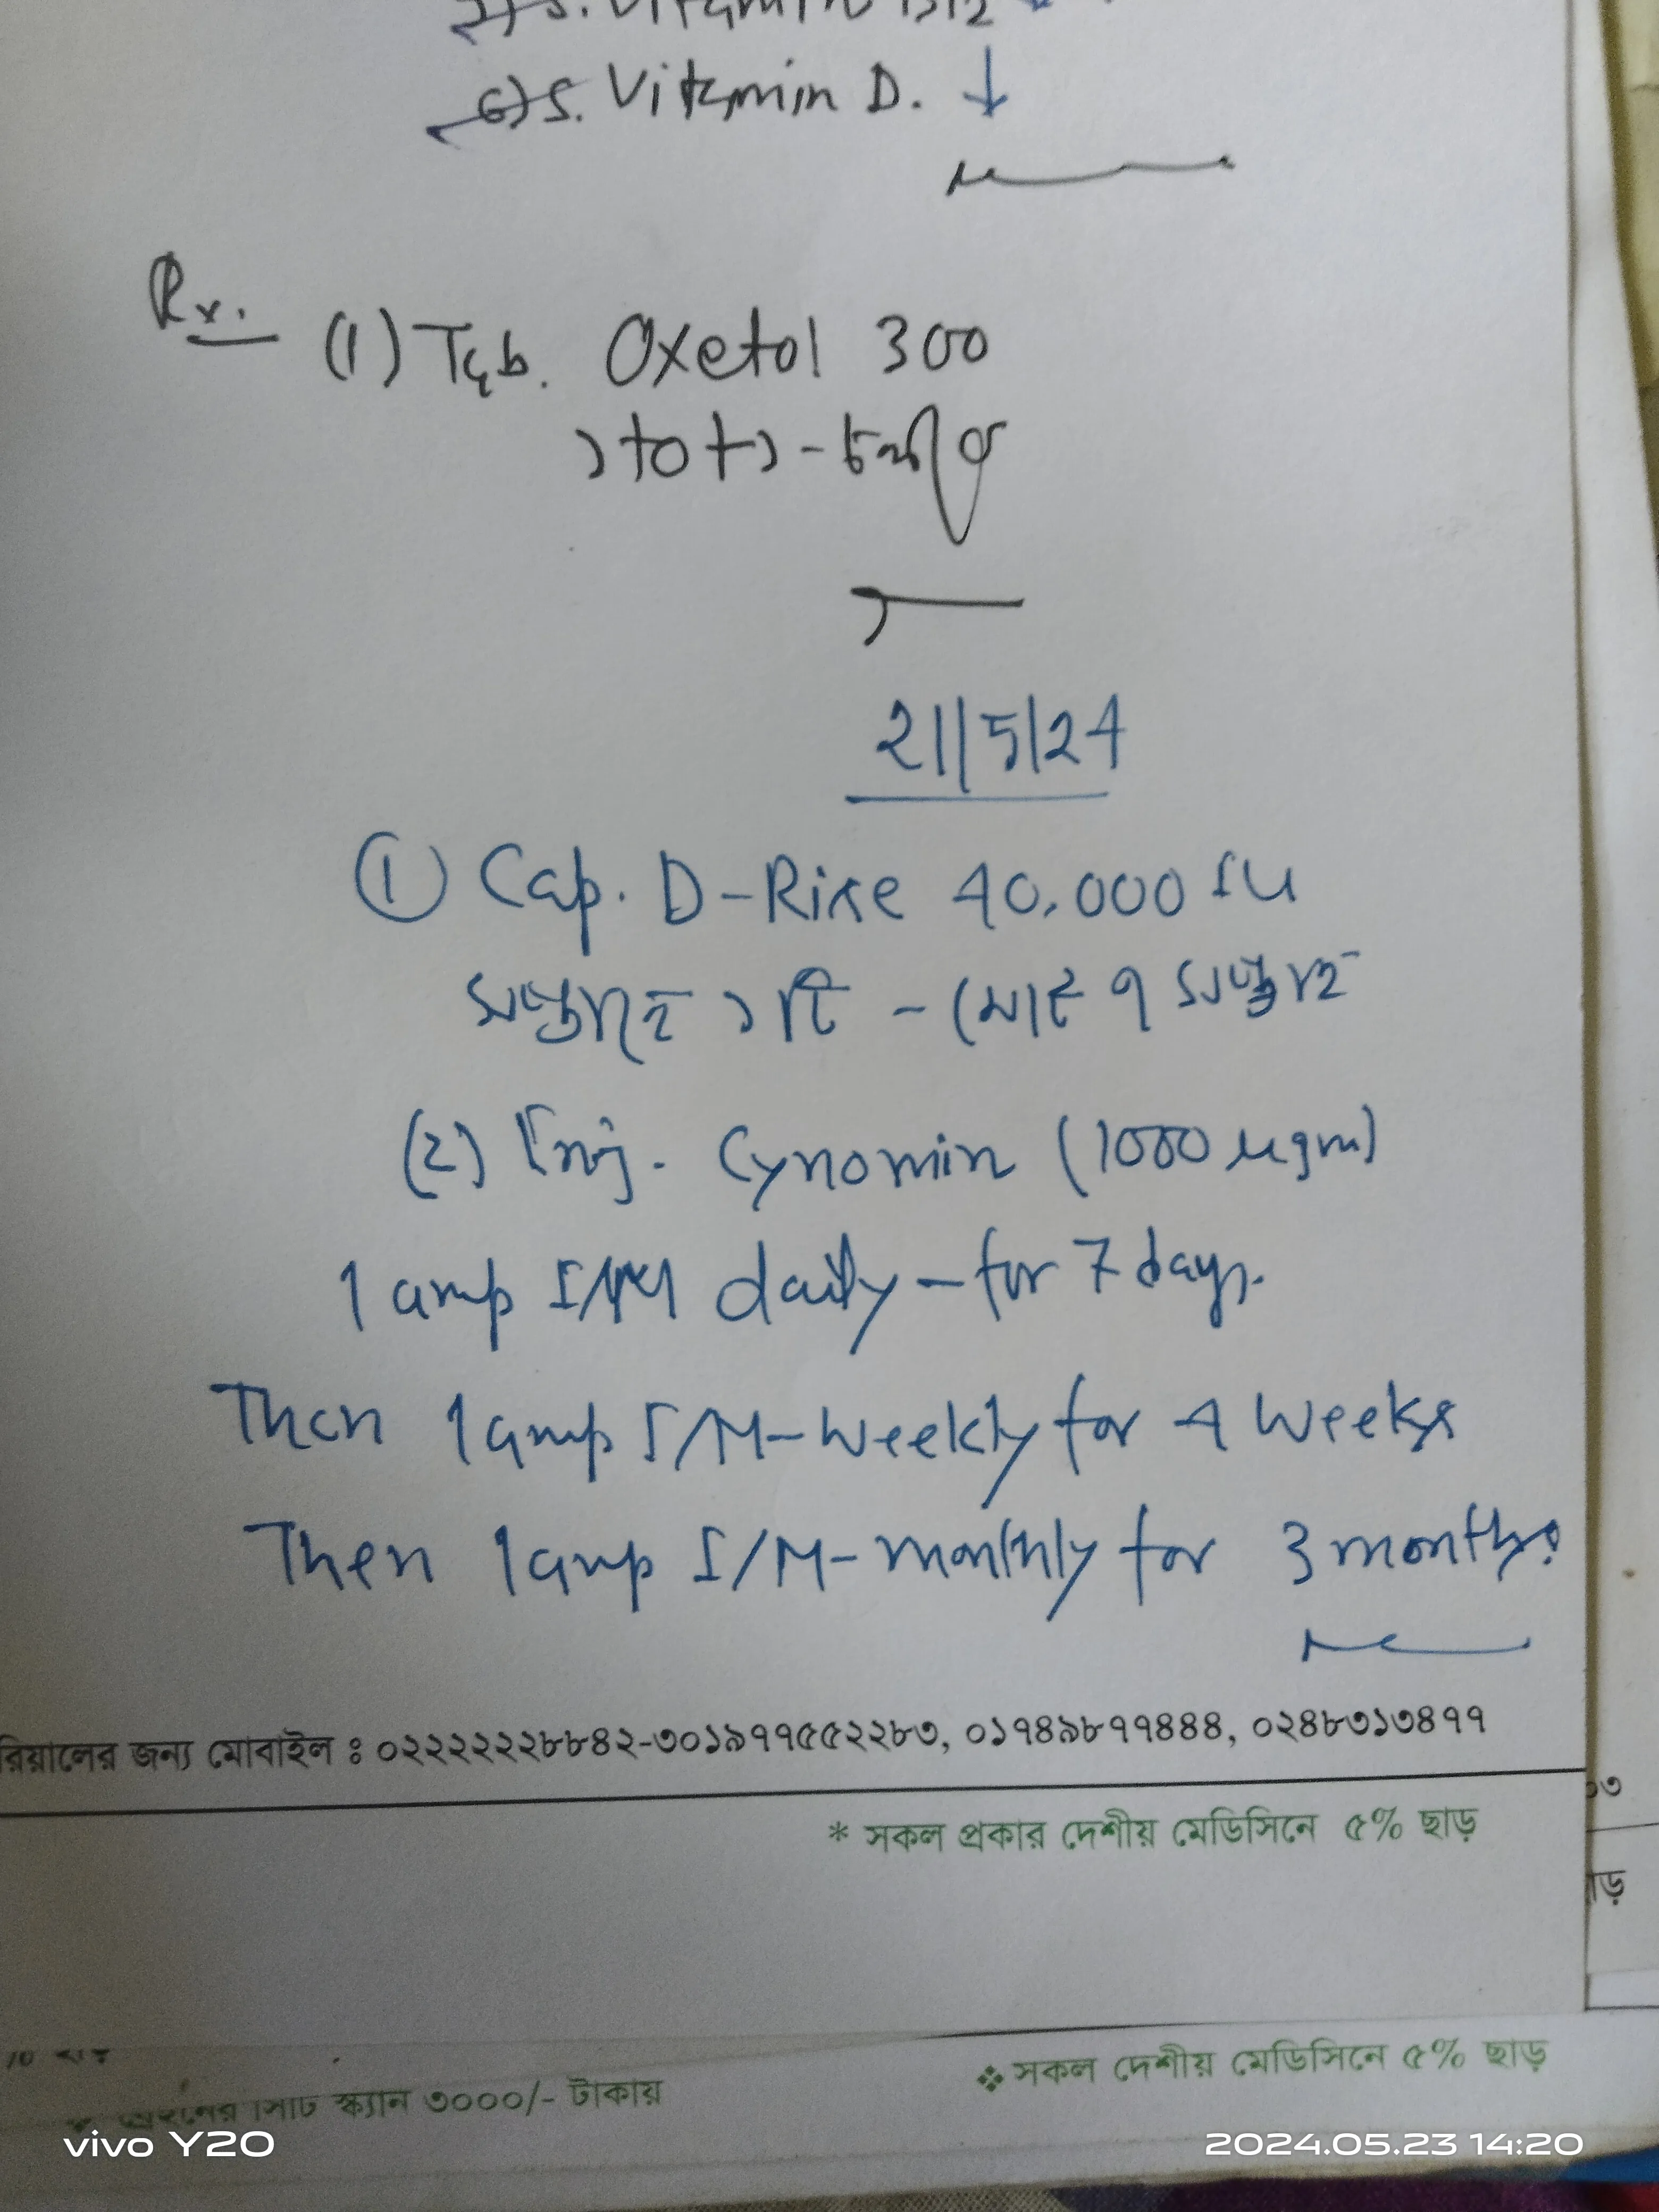 S. Vitamin B12
6) S. Vitamin D. ↓
Rx.
(1) Tab. Oxetol 300
১+০+১ - চলবে
21/5/24
① Cap. D-Rise 40,000 IU
সপ্তাহে ১টি - মোট ৭ সপ্তাহ
(2) Inj. Cynomin (1000 µgm)
1 amp I/M daily - for 7 days.
Then 1 amp I/M - weekly for 4 weeks
Then 1 amp I/M - monthly for 3 months.
রিয়ালের জন্য মোবাইল ঃ ০২২২২২২৮৮৪২-৩০১৯৭৭৫৫২২৮৩, ০১৭৪৯৮৭৭৪৪৪, ০২৪৮৩১৩৪৭৭
* সকল প্রকার দেশীয় মেডিসিনে ৫% ছাড়
❖ সকল দেশীয় মেডিসিনে ৫% ছাড়
সিটি স্ক্যান ৩০০০/- টাকায়
vivo Y20
2024.05.23 14:20